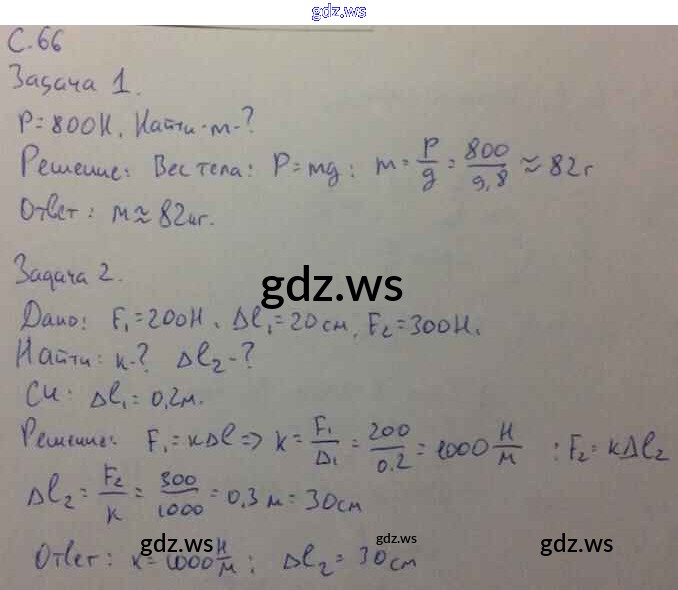 gdz.ws
С.66
Задача 1.
P=800Н. Найти-m-?
Решение: Вес тела: P=mg; m=P/g=800/9,8≈82г
Ответ: m≈82кг.
Задача 2.
gdz.ws
Дано: F₁=200Н. Δl₁=20см, F₂=300Н.
Найти: к-? Δl₂-?
СИ: Δl₁=0,2м.
Решение: F₁=кΔl=>к=F₁/Δ₁=200/0.2=1000Н/м ; F₂=кΔl₂
Δl₂=F₂/к=300/1000=0,3м=30см
Ответ: к=1000Н/м; Δl₂=30см
gdz.ws gdz.ws gdz.ws